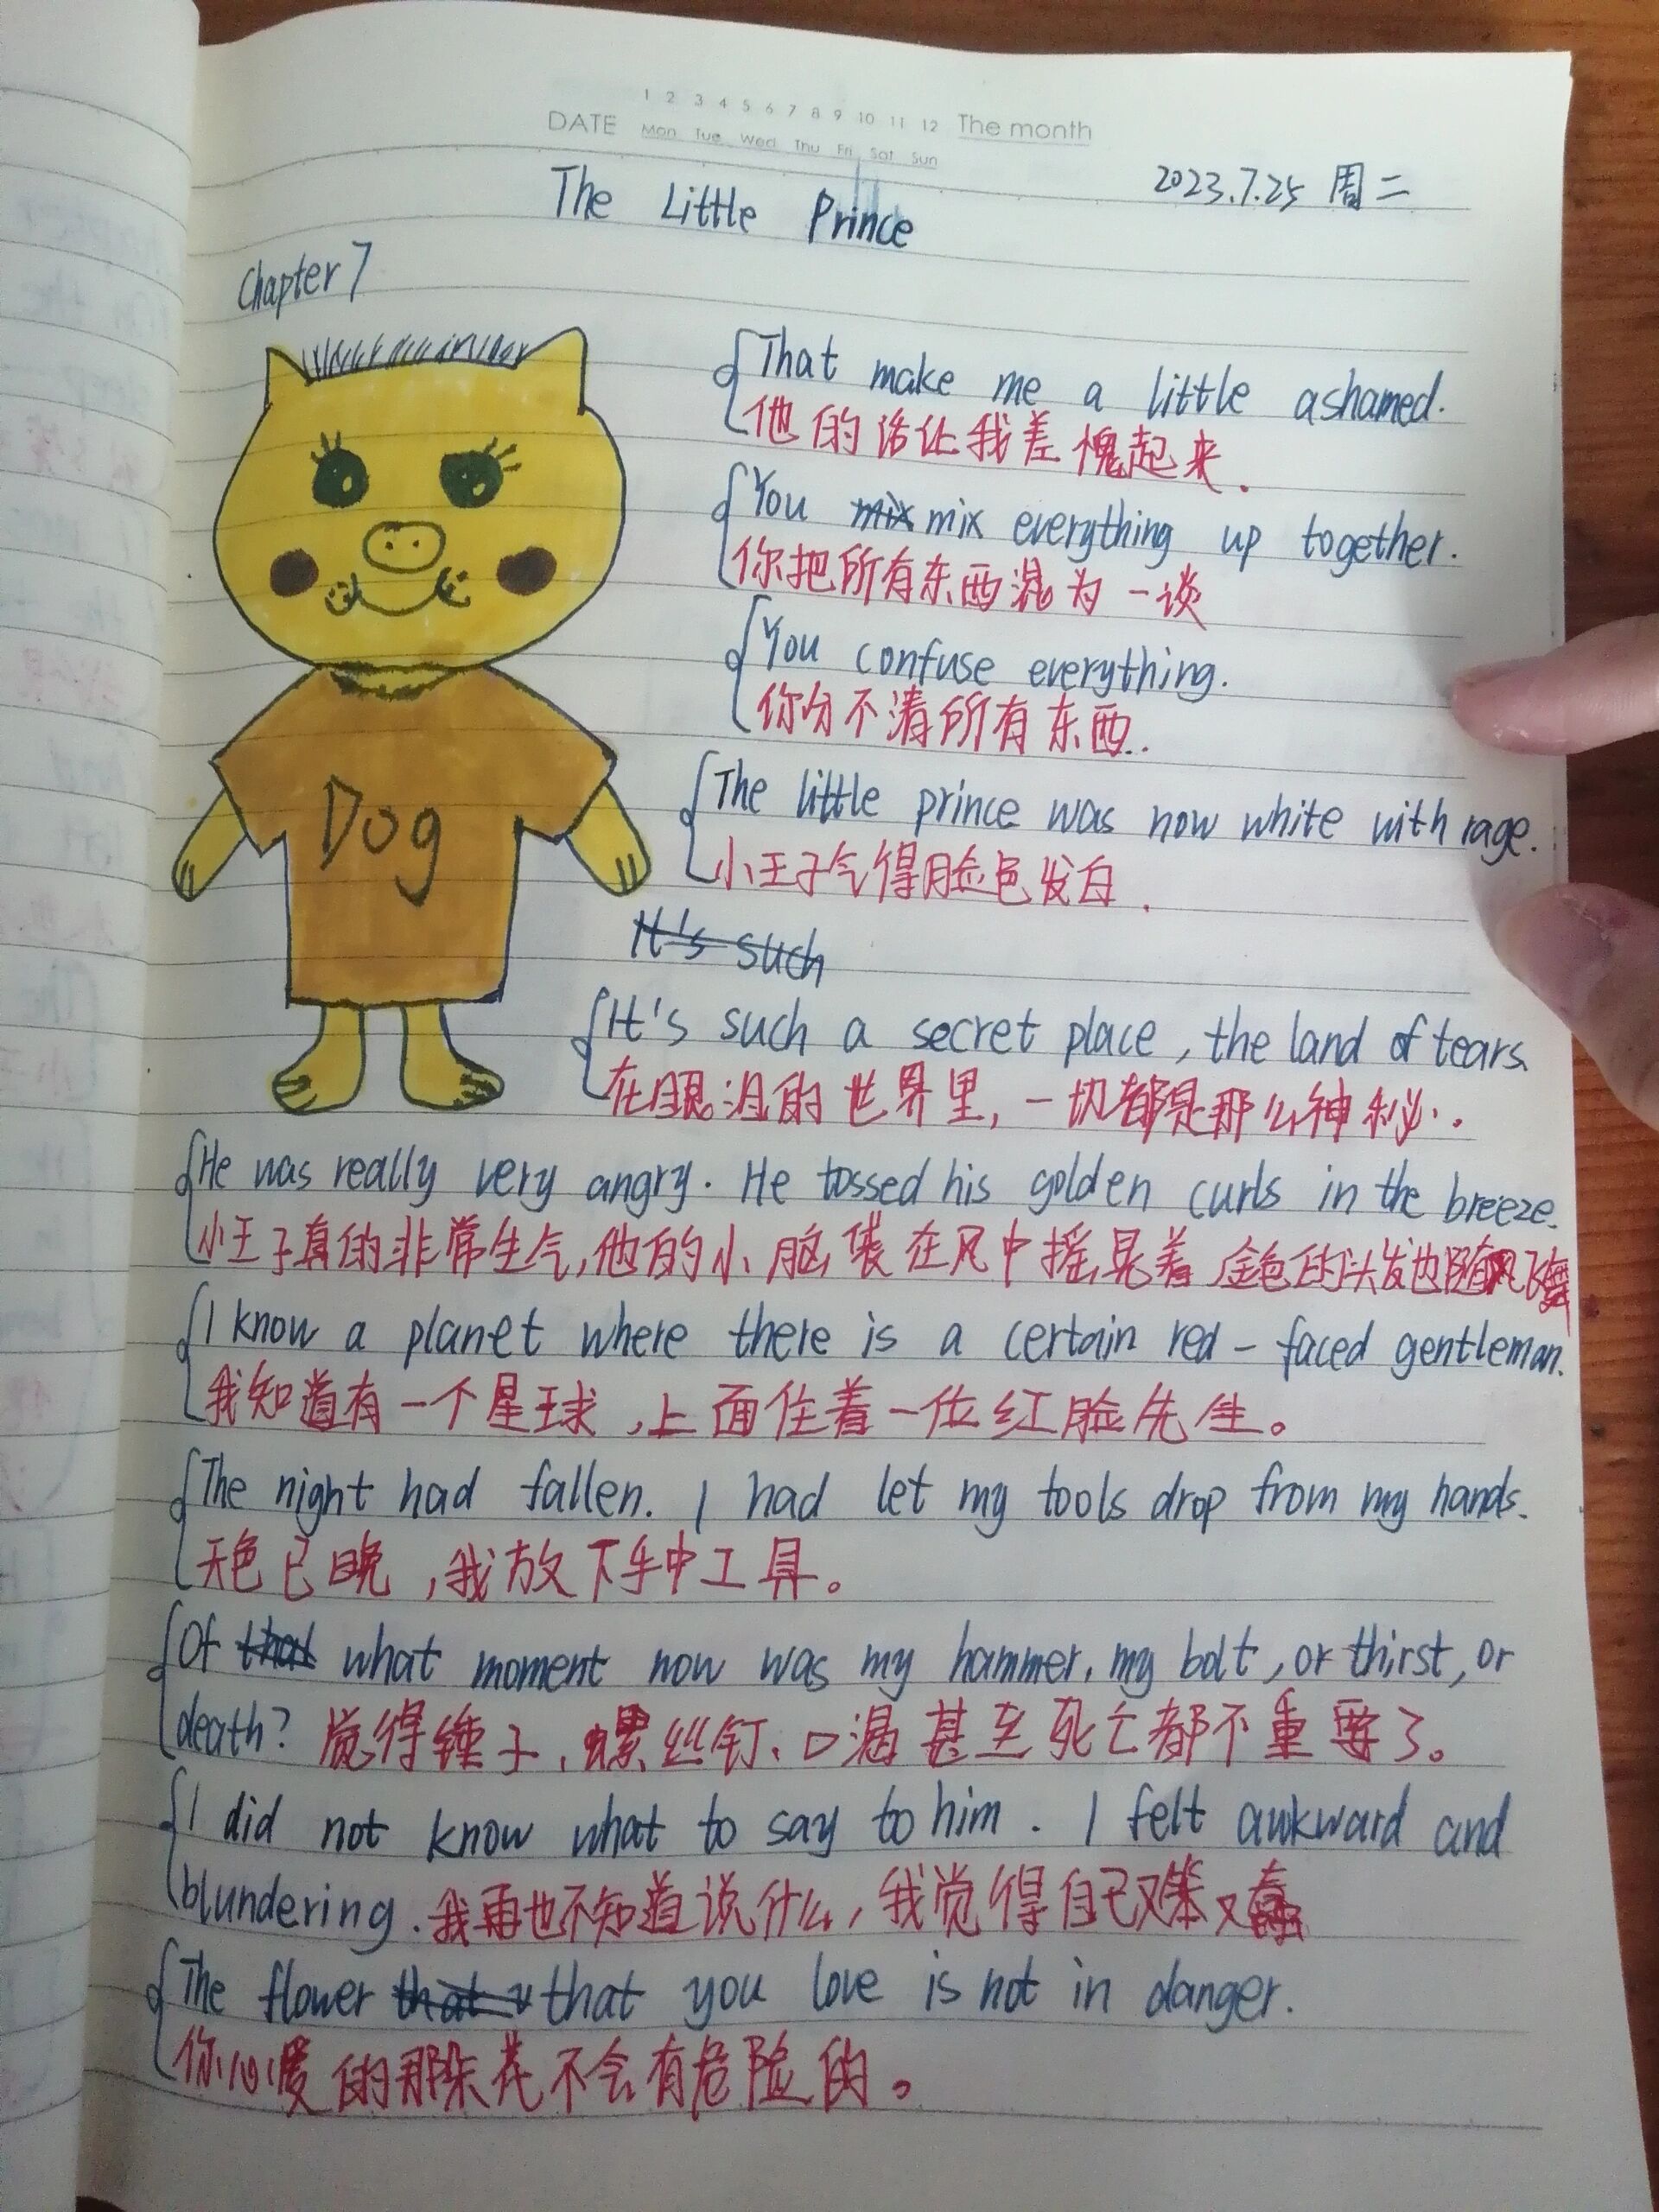 1 2 3 4 5 6 7 8 9 10 11 12 The month
DATE Mon Tue Wed Thu Fri Sat Sun
2023.7.25 周二
The Little Prince
Chapter 7
That make me a little ashamed.
他的话让我差愧起来.
You mix mix everything up together.
你把所有东西混为一谈
You confuse everything.
你分不清所有东西..
The little prince was now white with rage.
小王子气得脸色发白.
Dog
It's such
It's such a secret place, the land of tears
在眼泪的世界里,一切都是那么神秘.
He was really very angry. He tossed his golden curls in the breeze.
小王子真的非常生气,他的小脑袋在风中摇晃着 金色的头发也随风飞舞
I know a planet where there is a certain red-faced gentleman.
我知道有一个星球,上面住着一位红脸先生。
The night had fallen. I had let my tools drop from my hands.
天色已晚,我放下手中工具。
Of that what moment now was my hammer, my bolt, or thirst, or
death? 觉得锤子、螺丝钉、口渴甚至死亡都不重要了。
I did not know what to say to him. I felt awkward and
blundering. 我再也不知道说什么,我觉得自己又笨又蠢
The flower that y that you love is not in danger.
你心爱的那朵花不会有危险的。